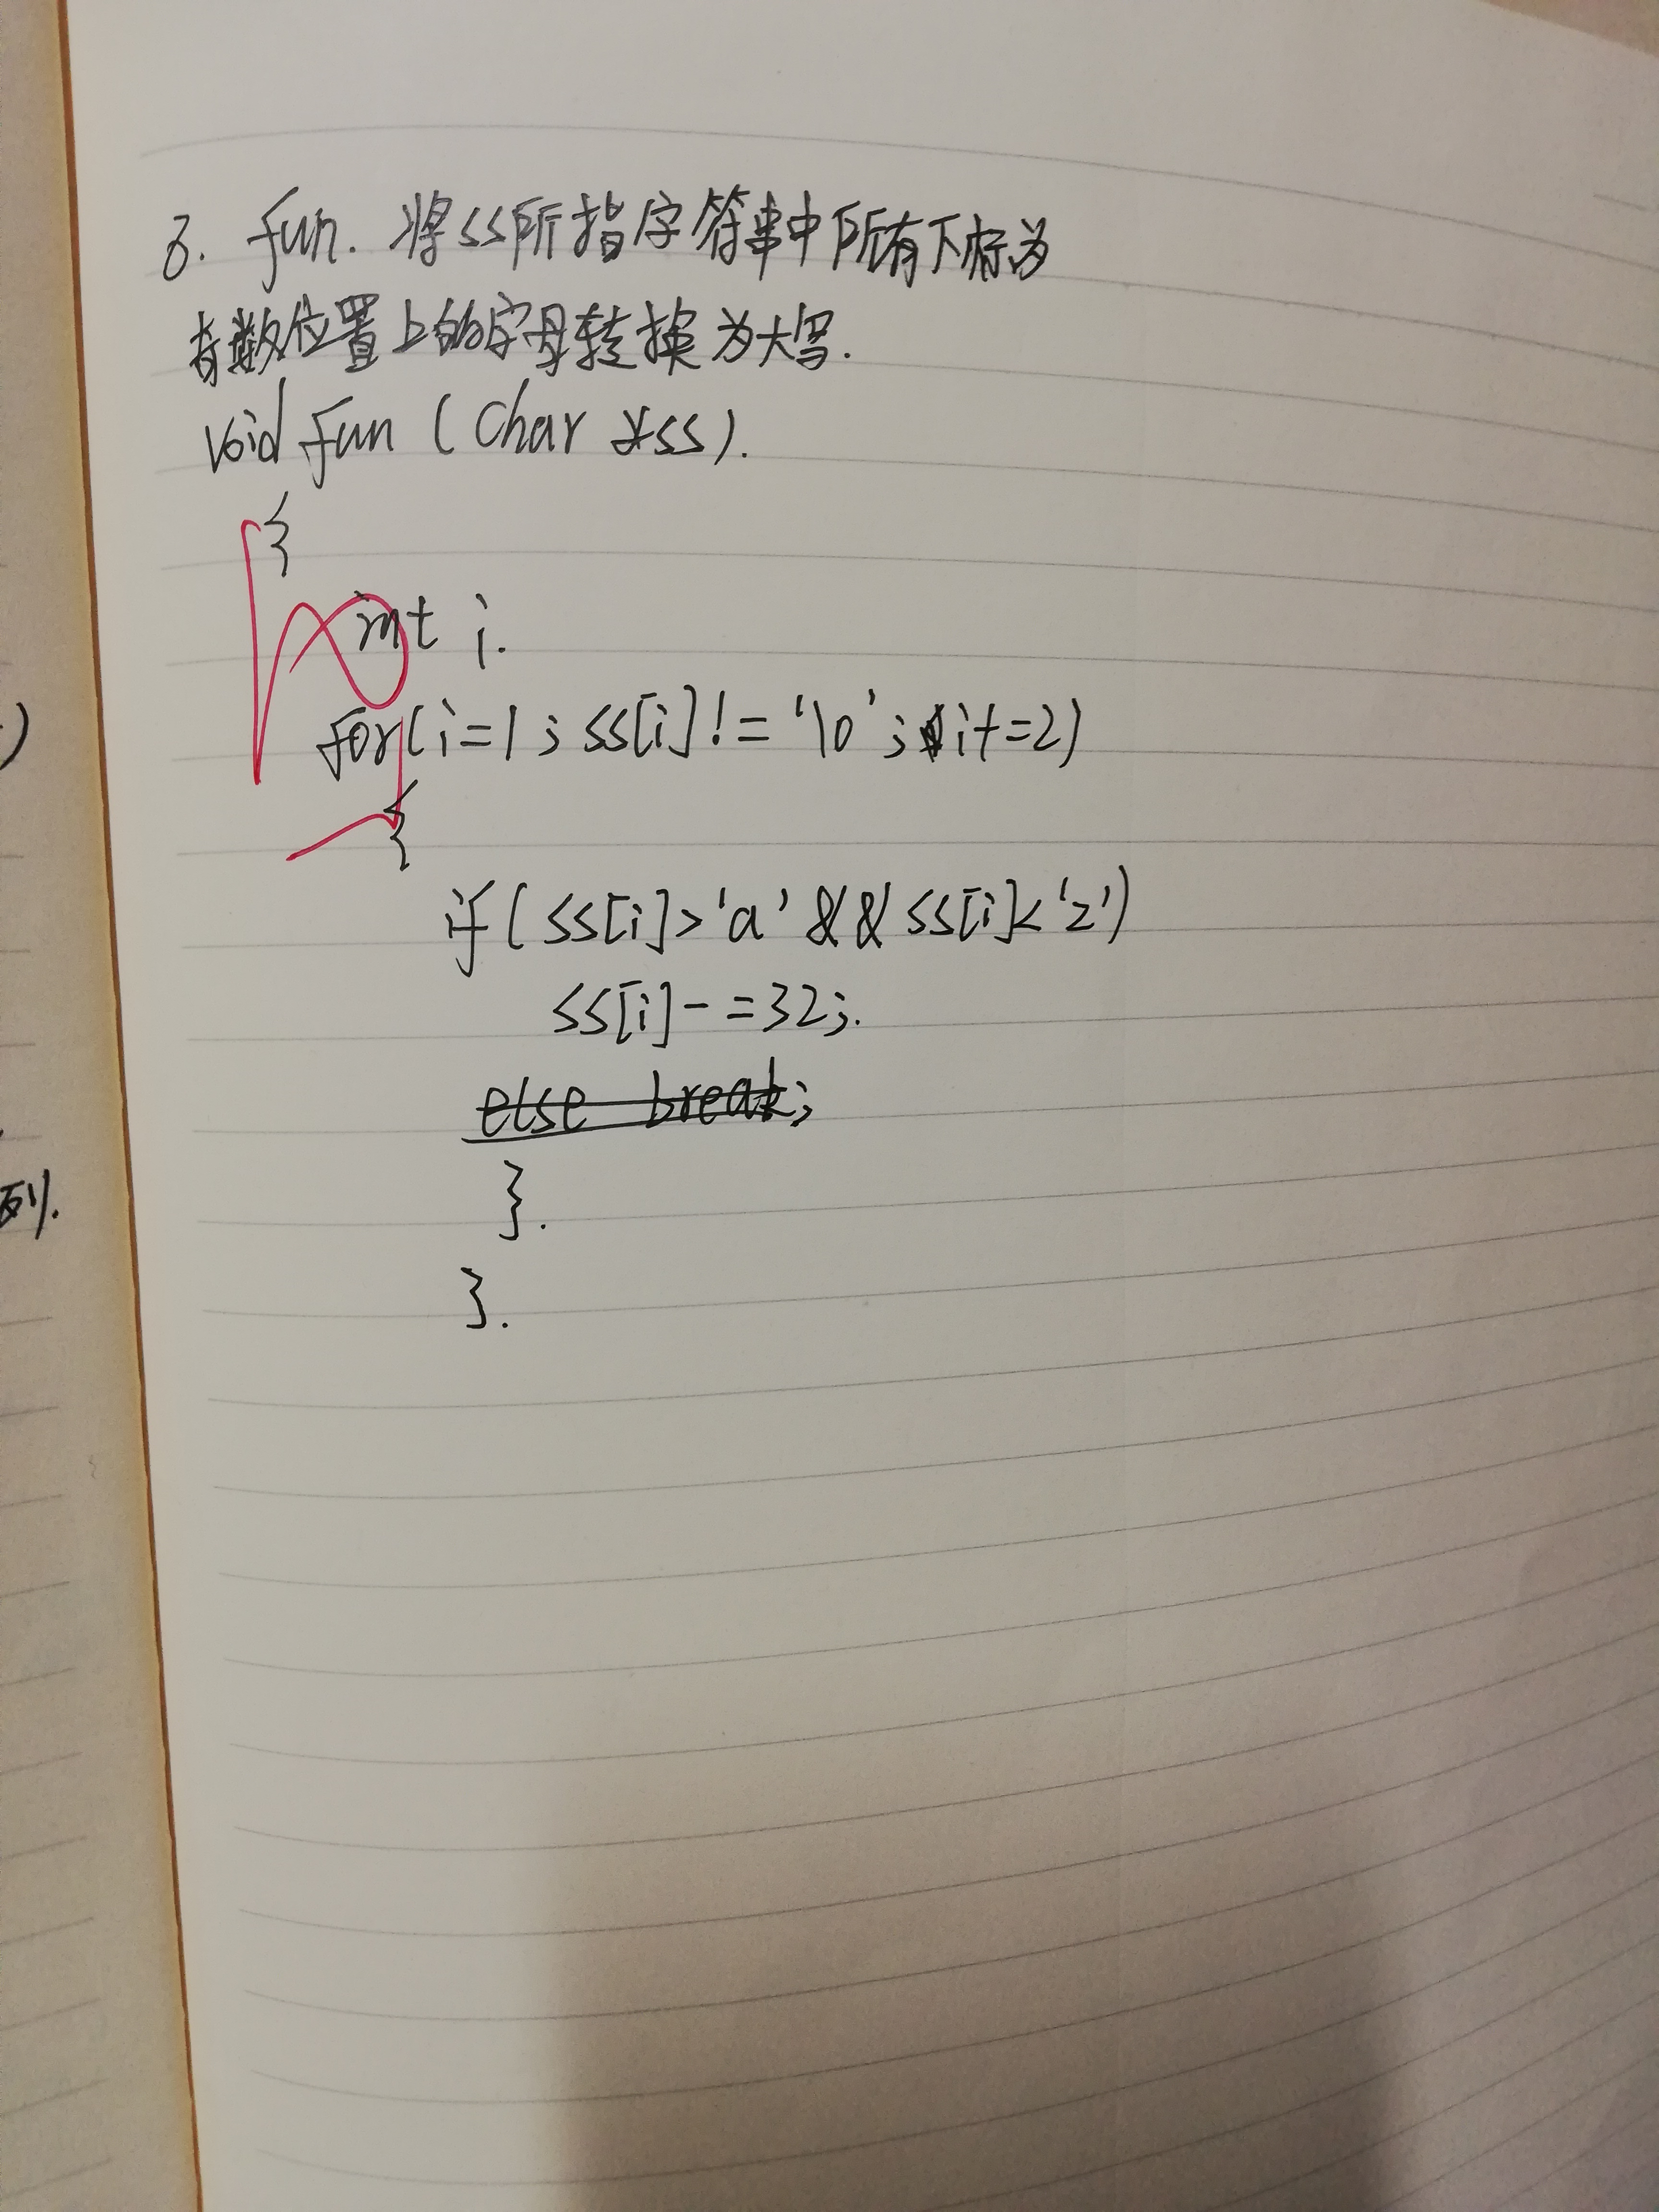 3. fun. 将ss所指字符串中所有下标为
奇数位置上的字母转换为大写.
void fun (char *ss).
{
int i.
for(i=1; ss[i]!='\0'; i+=2)
{
if(ss[i]>'a' && ss[i]<'z')
ss[i]-=32;.
else break;
}.
}.
)
列.